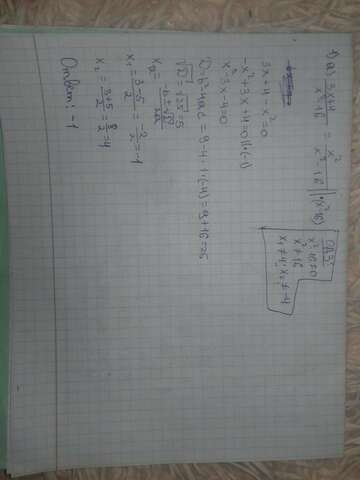 1) а) (3x+4)/(x²-16) = x²/(x²-16) | ·(x²-16)
ОДЗ:
x²-16≠0
x²≠16
x₁≠4; x₂≠-4
3x+4-x²=0
-x²+3x+4=0 |·(-1)
x²-3x-4=0
D=b²-4ac = 9-4·1·(-4)=9+16=25
√D=√25=5
x₁,₂= (-b±√D)/2a
x₁= (3-5)/2 = -2/2=-1
x₂= (3+5)/2 = 8/2=4
Ответ: -1